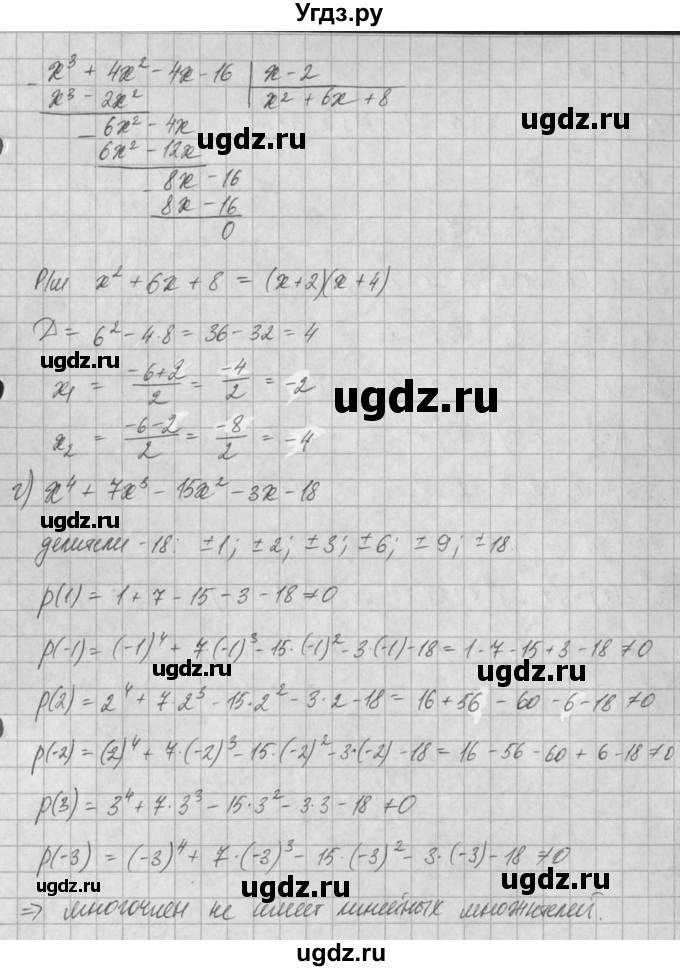 Угдз.ру
x³ + 4x² - 4x - 16 | x - 2
x³ - 2x² x² + 6x + 8
- 6x² - 4x ugdz.ru ugdz.ru
6x² - 12x
- 8x - 16
8x - 16
0
Р/м x² + 6x + 8 = (x+2)(x+4)
D = 6² - 4·8 = 36 - 32 = 4
ugdz.ru
x₁ = -6+2/2 = -4/2 = -2 ugdz.ru
x₂ = -6-2/2 = -8/2 = -4
г) x⁴ + 7x³ - 15x² - 3x - 18
ugdz.ru
делители -18: ±1; ±2; ±3; ±6; ±9; ±18.
p(1) = 1 + 7 - 15 - 3 - 18 ≠ 0
p(-1) = (-1)⁴ + 7·(-1)³ - 15·(-1)² - 3·(-1) - 18 = 1 - 7 - 15 + 3 - 18 ≠ 0
ugdz.ru ugdz.ru
p(2) = 2⁴ + 7·2³ - 15·2² - 3·2 - 18 = 16 + 56 - 60 - 6 - 18 ≠ 0
p(-2) = (2)⁴ + 7·(-2)³ - 15·(-2)² - 3·(-2) - 18 = 16 - 56 - 60 + 6 - 18 ≠ 0
p(3) = 3⁴ + 7·3³ - 15·3² - 3·3 - 18 ≠ 0
p(-3) = (-3)⁴ + 7·(-3)³ - 15·(-3)² - 3·(-3) - 18 ≠ 0
ugdz.ru ugdz.ru ugdz.ru
⇒ многочлен не имеет линейных множителей.
ugdz.ru